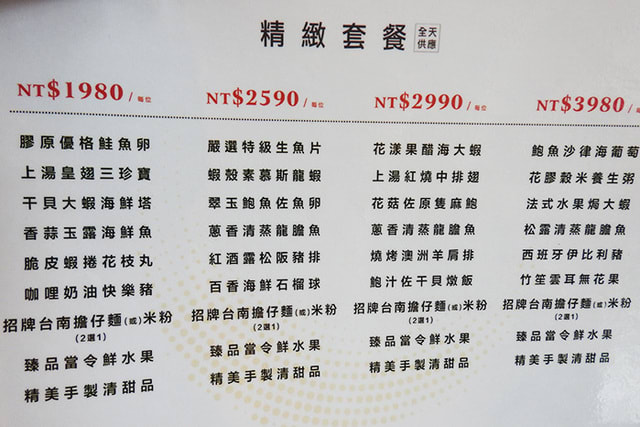 精緻套餐 全天供應
NT$1980/每位
膠原優格鮭魚卵
上湯皇翅三珍寶
干貝大蝦海鮮塔
香蒜玉露海鮮魚
脆皮蝦捲花枝丸
咖哩奶油快樂豬
招牌台南擔仔麵(或)米粉
(2選1)
臻品當令鮮水果
精美手製清甜品
NT$2590/每位
嚴選特級生魚片
蝦殼素慕斯龍蝦
翠玉鮑魚佐魚卵
蔥香清蒸龍膽魚
紅酒露松阪豬排
百香海鮮石榴球
招牌台南擔仔麵(或)米粉
(2選1)
臻品當令鮮水果
精美手製清甜品
NT$2990/每位
花漾果醋海大蝦
上湯紅燒中排翅
花菇佐原隻麻鮑
蔥香清蒸龍膽魚
燒烤澳洲羊肩排
鮑汁佐干貝燉飯
招牌台南擔仔麵(或)米粉
(2選1)
臻品當令鮮水果
精美手製清甜品
NT$3980/
鮑魚沙律海葡萄
花膠穀米養生粥
法式水果焗大蝦
松露清蒸龍膽魚
西班牙伊比利豬
竹笙雲耳無花果
招牌台南擔仔麵(或)米粉
(2選1)
臻品當令鮮水果
精美手製清甜品